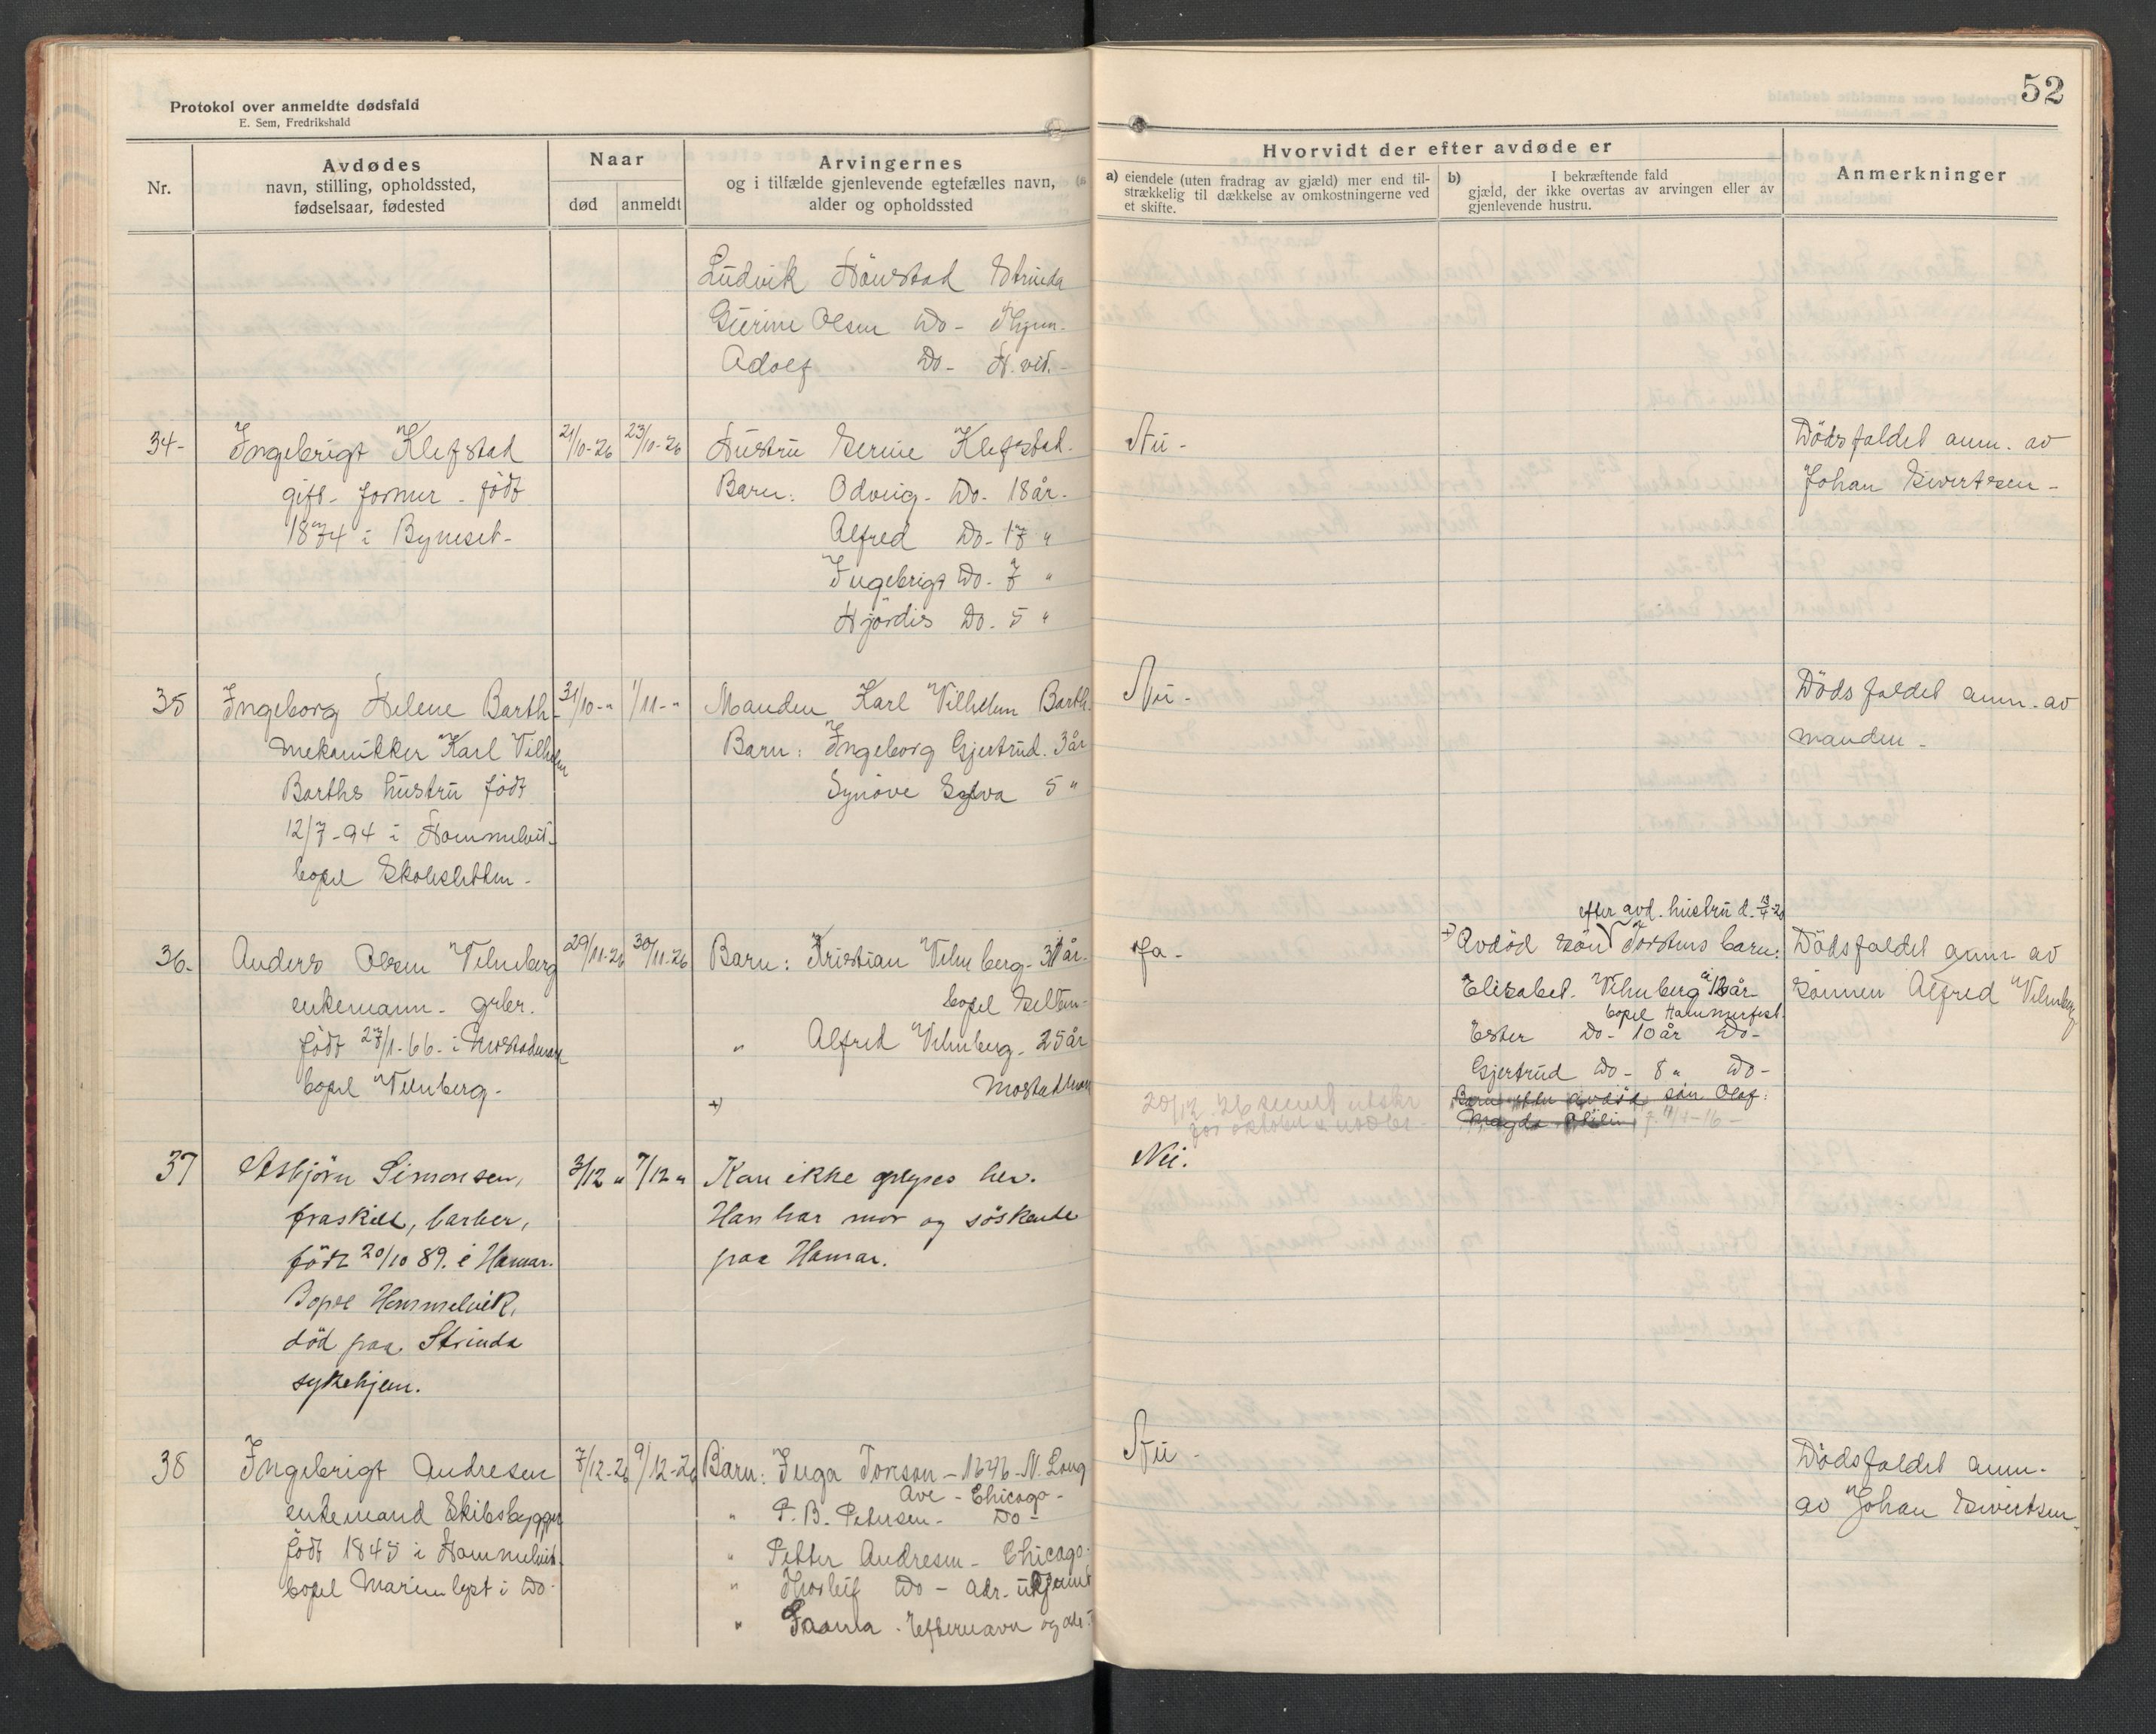 Protokol over anmeldte dødsfald
E. Sem, Fredrikshald
52
Nr.
Avdødes
navn, stilling, opholdssted,
fødselsaar, fødested
Naar
død
anmeldt
Arvingernes
og i tilfælde gjenlevende egtefælles navn,
alder og opholdssted
Hvorvidt der efter avdøde er
a) eiendele (uten fradrag av gjæld) mer end til-
strækkelig til dækkelse av omkostningerne ved
et skifte.
b) I bekræftende fald
gjæld, der ikke overtas av arvingen eller av
gjenlevende hustru.
Anmerkninger
Ludvik Hönstad Strinda
Gurine Olsen Do - Thjem.
Adolf Do - H.vik.
34-
Ingebrigt Klefstad
gift - former - født
1874 i Byneset-
21/10-26
23/10-26
Hustru Serine Klefstad.
Barn: Odveig - Do - 18 år.
Alfred Do - 17 "
Ingebrigt Do - 7 "
Hjördis Do - 5 "
Nei -
Dödsfaldet anm. av
Johan Sivertsen -
35
Ingeborg Helene Barth-
mekanikker Karl Vilhelm
Barths hustru födt
12/7-94 i Hommelvik-
bopel Skoleslitten -
31/10-"
1/11-"
Manden Karl Vilhelm Barth.
Barn: Ingeborg Gjertrud. 3 år
Synöve Sylva 5 "
Nei -
Döds faldet anm. av
manden -
36-
Anders Olsen Velnberg
enkemann - grbr.
födt 27/1-66 - i Mostadmark
bopel Velnberg -
29/11-26
30/11-26
Barn: Kristian Velnberg - 31 år.
bopel Selven -
" Alfred Velnberg - 25 år
Mostadmark
+)
Ja -
20/12-26 sendt utskr
for oktober & novbr.
efter avd. hustru d.
+) Avdöd sön Torstens barn:
Elisabet Velnberg 12 år
bopel Hammerfest.
Ester Do - 10 år Do -
Gjertrud Do - 8 " Do -
Barn etter avdöd sön Olaf:
Magda
Dödsfaldet anm. av
sönnen Alfred Velnberg
37
Asbjörn Simonsen,
fraskilt, barber,
födt 20/10 89. i Hamar.
Bopel Hommelvik,
död paa Strinda
sykehjem.
3/12 "
7/12 "
Kan ikke oplyses her.
Han har mor og söskende
paa Hamar.
Nei.
38
Ingebrigt Andresen
enkemand Skibsbygger
födt 1845 i Hommelvik
bopel Marienlyst i Do -
7/12-26
9/12-26
Barn: Inga Tonson - 1646 - N. Long
Ave - Chicago -
" P. B. Petersen - Do -
" Petter Andresen - Chicago
" Thorleif Do - adr. ukjent
" Efternavn og adr.
Nei -
Dödsfaldet anm.
av Johan Sivertsen.